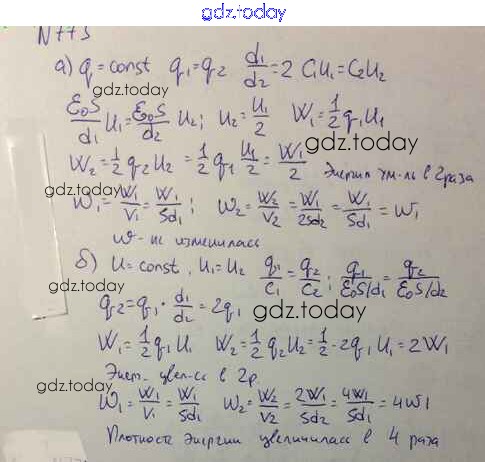 gdz.today
gdz.today
N773
а) q = const q₁=q₂ d₁/d₂=2 C₁U₁=C₂U₂
gdz.today
ε₀S/d₁ U₁ = ε₀S/d₂ U₂; U₂ = U₁/2 W₁ = 1/2 q₁U₁
gdz.today
W₂ = 1/2 q₂U₂ = 1/2 q₁ U₁/2 = W₁/2 Энергия ум-ль в 2 раза
gdz.today
w₁ = W₁/V₁ = W₁/Sd₁; w₂ = W₂/V₂ = W₁/2Sd₂ = W₁/Sd₁ = w₁
w - не изменилась
б) U = const, U₁=U₂ q₁/C₁ = q₂/C₂; q₁/ε₀S/d₁ = q₂/ε₀S/d₂
gdz.today
q₂ = q₁ · d₁/d₂ = 2q₁
gdz.today
W₁ = 1/2 q₁U₁ W₂ = 1/2 q₂U₂ = 1/2 · 2q₁U₁ = 2W₁
Энер. увел-сь в 2 р.
gdz.today
w₁ = W₁/V₁ = W₁/Sd₁ w₂ = W₂/V₂ = 2W₁/Sd₂ = 4W₁/Sd₁ = 4w1
Плотность энергии увеличилась в 4 раза
gdz.today